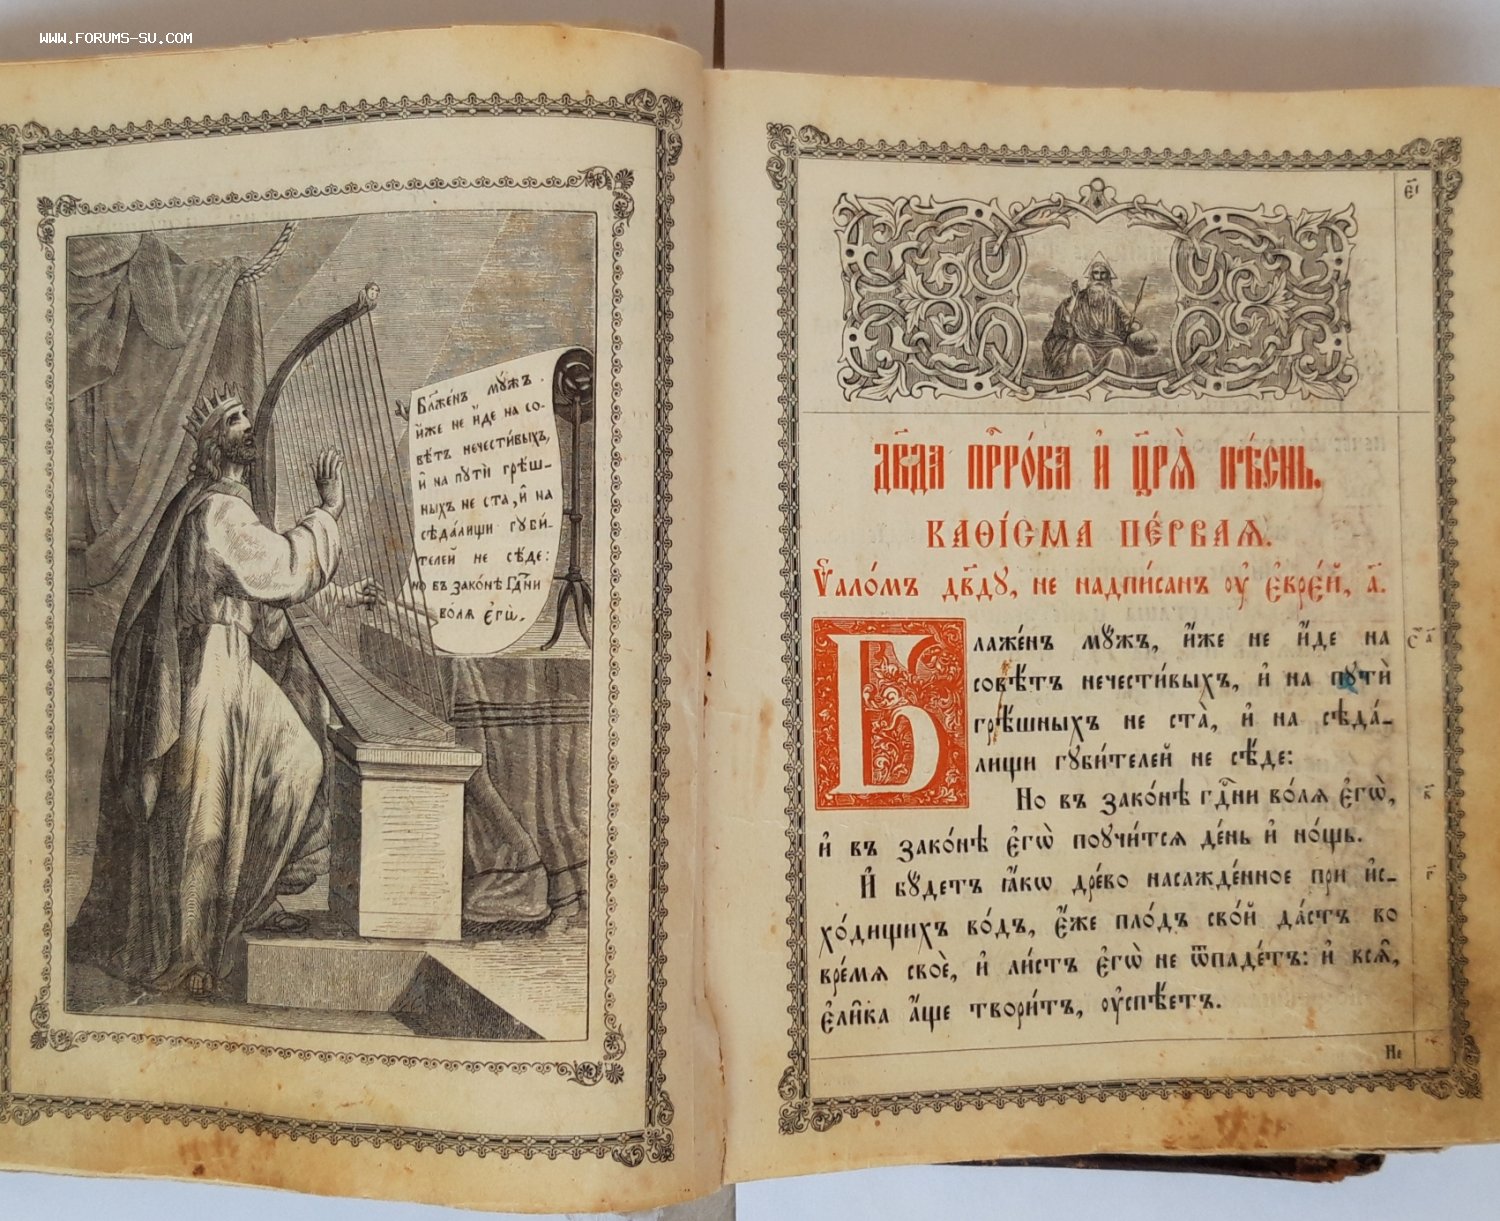 WWW.FORUMS-SU.COM
Бл҃же́нъ мꙋ́жъ.
и҆́же не и҆́де на со-
вѣ́тъ нечести́выхъ,
и҆ на пꙋтѝ грѣ́ш-
ныхъ не ста, и҆ на
сѣда́лищи гꙋби́-
телей не сѣ́де:
но въ зако́нѣ Гдⷭ҇ни
во́лѧ є҆гѡ̀.
є҃і
Дв҃да прⷪ҇ро́ка и҆ цр҃ѧ̀ пѣ́снь.
Каѳі́сма пе́рваѧ.
Ѱало́мъ дв҃дꙋ, не надпи́санъ ᲂу҆ є҆вре́й, а҃.
Блаже́нъ мꙋ́жъ, и҆́же не и҆́де на
совѣ́тъ нечести́выхъ, и҆ на пꙋтѝ
грѣ́шныхъ не ста̀, и҆ на сѣда́-
лищи гꙋби́телей не сѣ́де:
Но въ зако́нѣ гдⷭ҇ни во́лѧ є҆гѡ̀,
и҆ въ зако́нѣ є҆гѡ̀ поꙋчи́тсѧ де́нь и҆ но́щь.
И҆ бꙋ́детъ ꙗ҆́кѡ дре́во насажде́нное при и҆с-
хо́дищихъ во́дъ, є҆́же пло́дъ сво́й да́стъ во
вре́мѧ своѐ, и҆ ли́стъ є҆гѡ̀ не ѿпаде́тъ: и҆ всѧ̑,
є҆ли̑ка а҆́ще твори́тъ, ᲂу҆спѣ́етъ.
в҃
г҃
Не